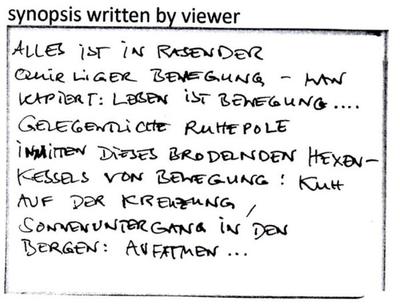 synopsis written by viewer
ALLES IST IN RASENDER
QUIRLIGER BEWEGUNG – MAN
KAPIERT: LEBEN IST BEWEGUNG....
GELEGENTLICHE RUHEPOLE
INMITTEN DIESES BRODELNDEN HEXEN-
KESSELS VON BEWEGUNG: KUH
AUF DER KREUZUNG/
SONNENUNTERGANG IN DEN
BERGEN: AUFATMEN ...